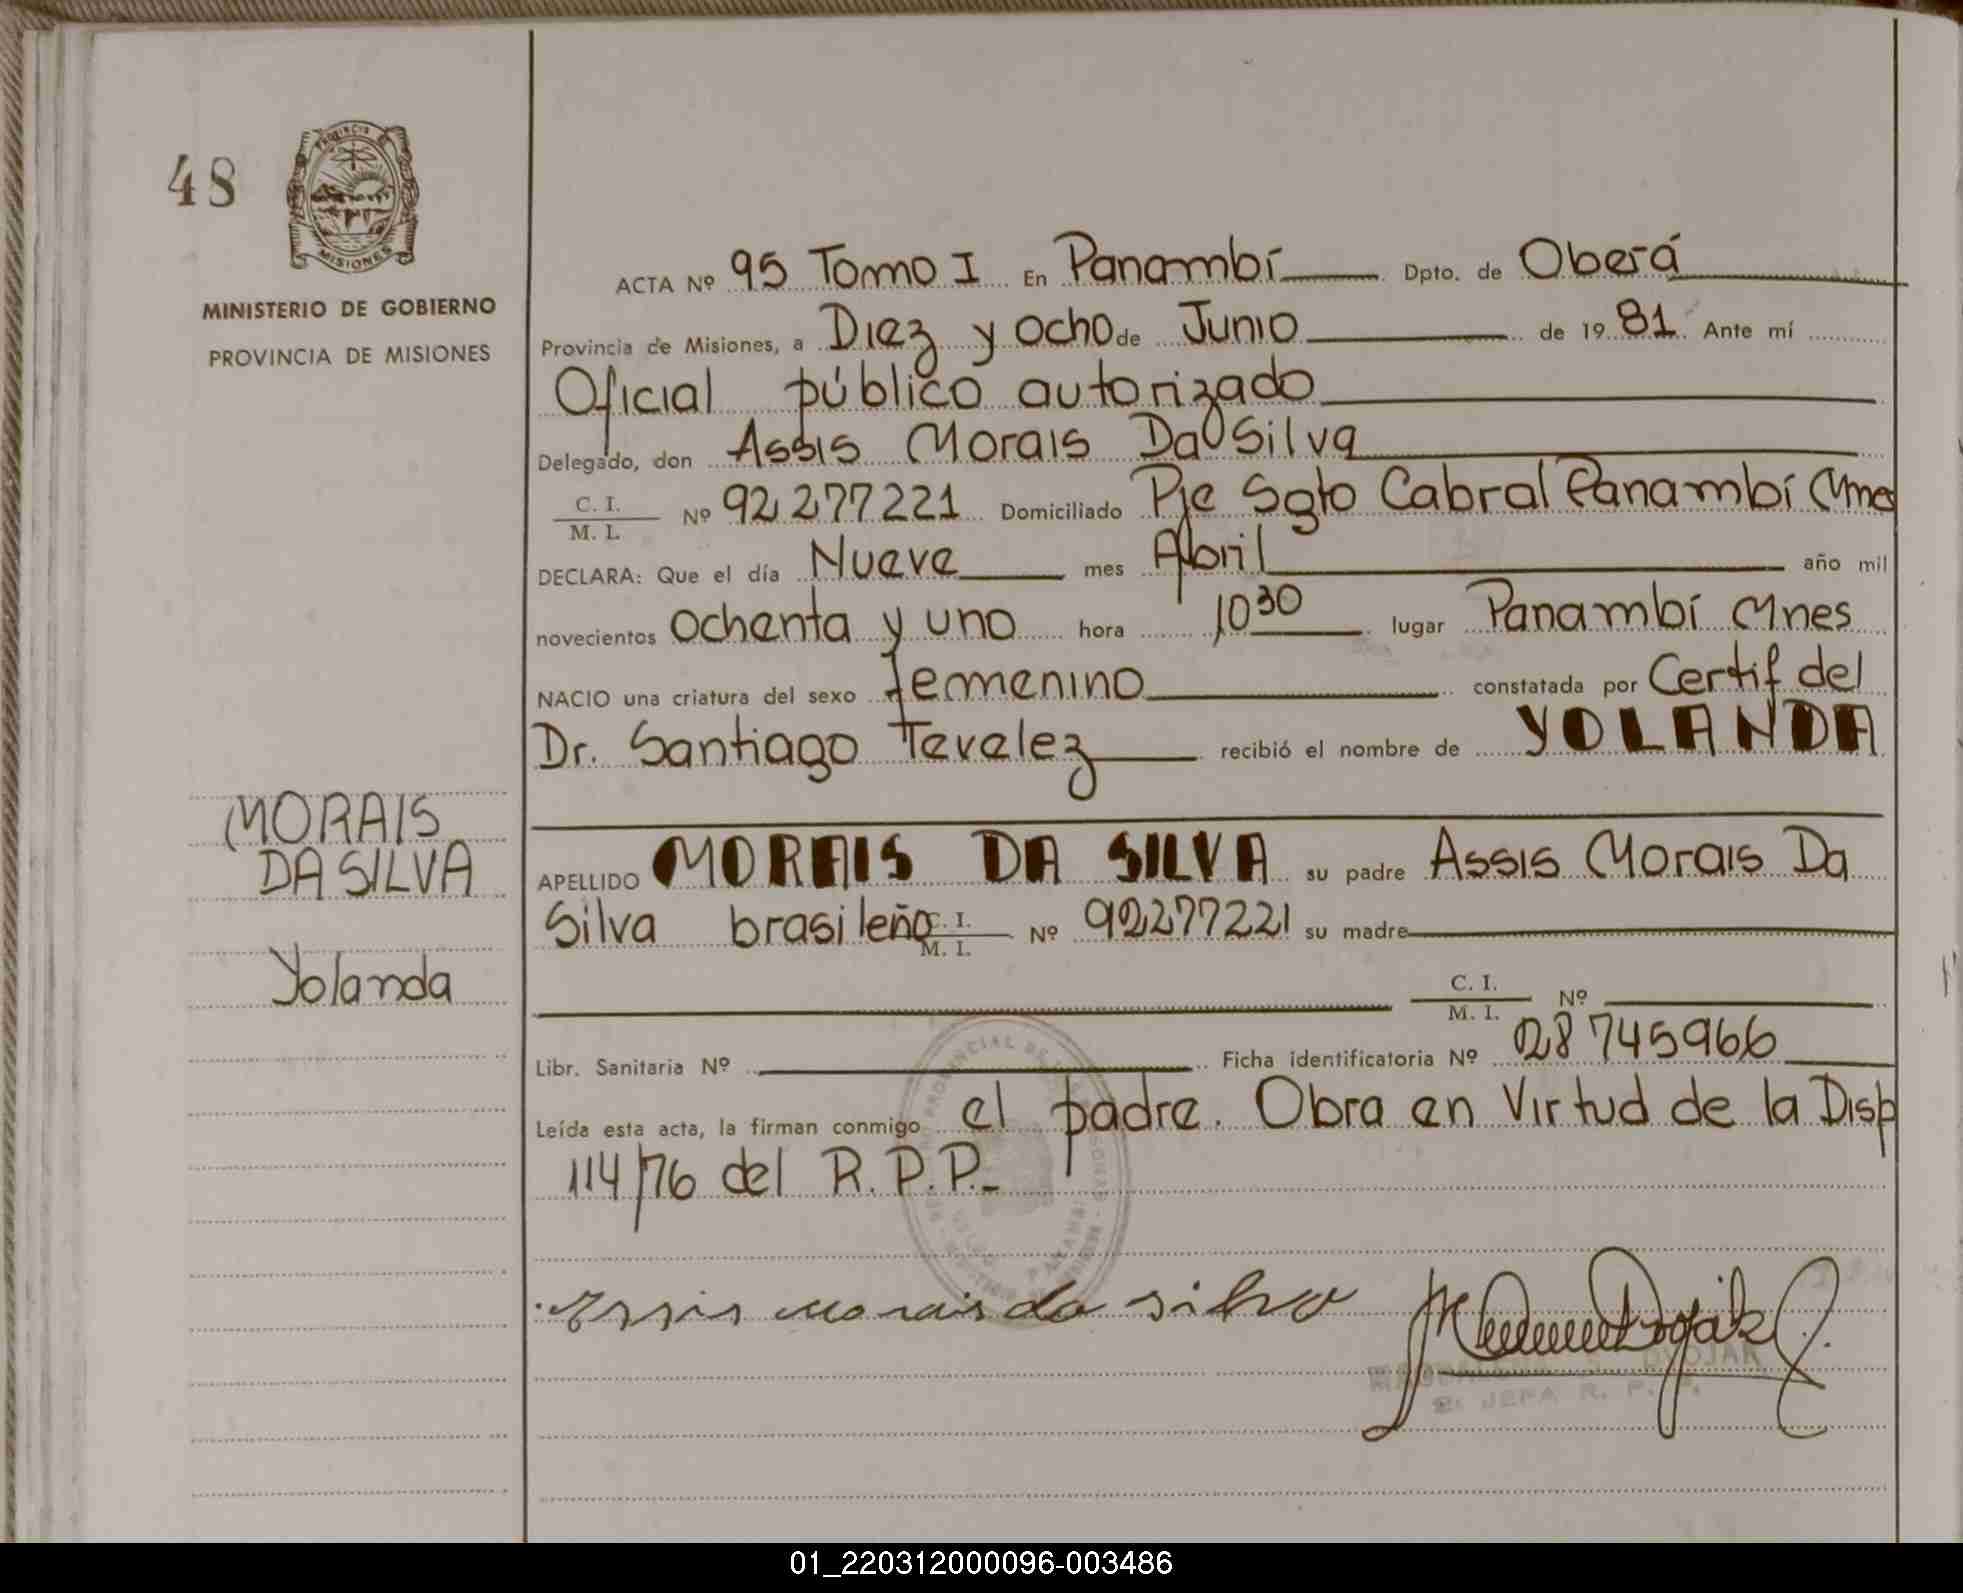 48
PROVINCIA
MISIONES
MINISTERIO DE GOBIERNO
PROVINCIA DE MISIONES
MORAIS
DA SILVA
Yolanda
ACTA Nº 95 Tomo I En Panambí Dpto. de Oberá
Provincia de Misiones, a Diez y ocho de Junio de 1981 Ante mí
Oficial público autorizado
Delegado, don Assis Morais Da Silva
C. I. / M. I. Nº 92 277221 Domiciliado Pje Sgto Cabral Panambí Mnes
DECLARA: Que el día Nueve mes Abril año mil
novecientos ochenta y uno hora 10 30 lugar Panambí Mnes
NACIO una criatura del sexo femenino constatada por Certif del
Dr. Santiago Tevelez recibió el nombre de YOLANDA
APELLIDO MORAIS DA SILVA su padre Assis Morais Da
Silva brasileño C. I. / M. I. Nº 92277221 su madre
C. I. / M. I. Nº
Libr. Sanitaria Nº Ficha identificatoria Nº 28 745966
Leída esta acta, la firman conmigo el padre. Obra en Virtud de la Disp
114/76 del R.P.P.-
Assis Morais da silva
DVOJAK
JEFA R. P.
01_220312000096-003486